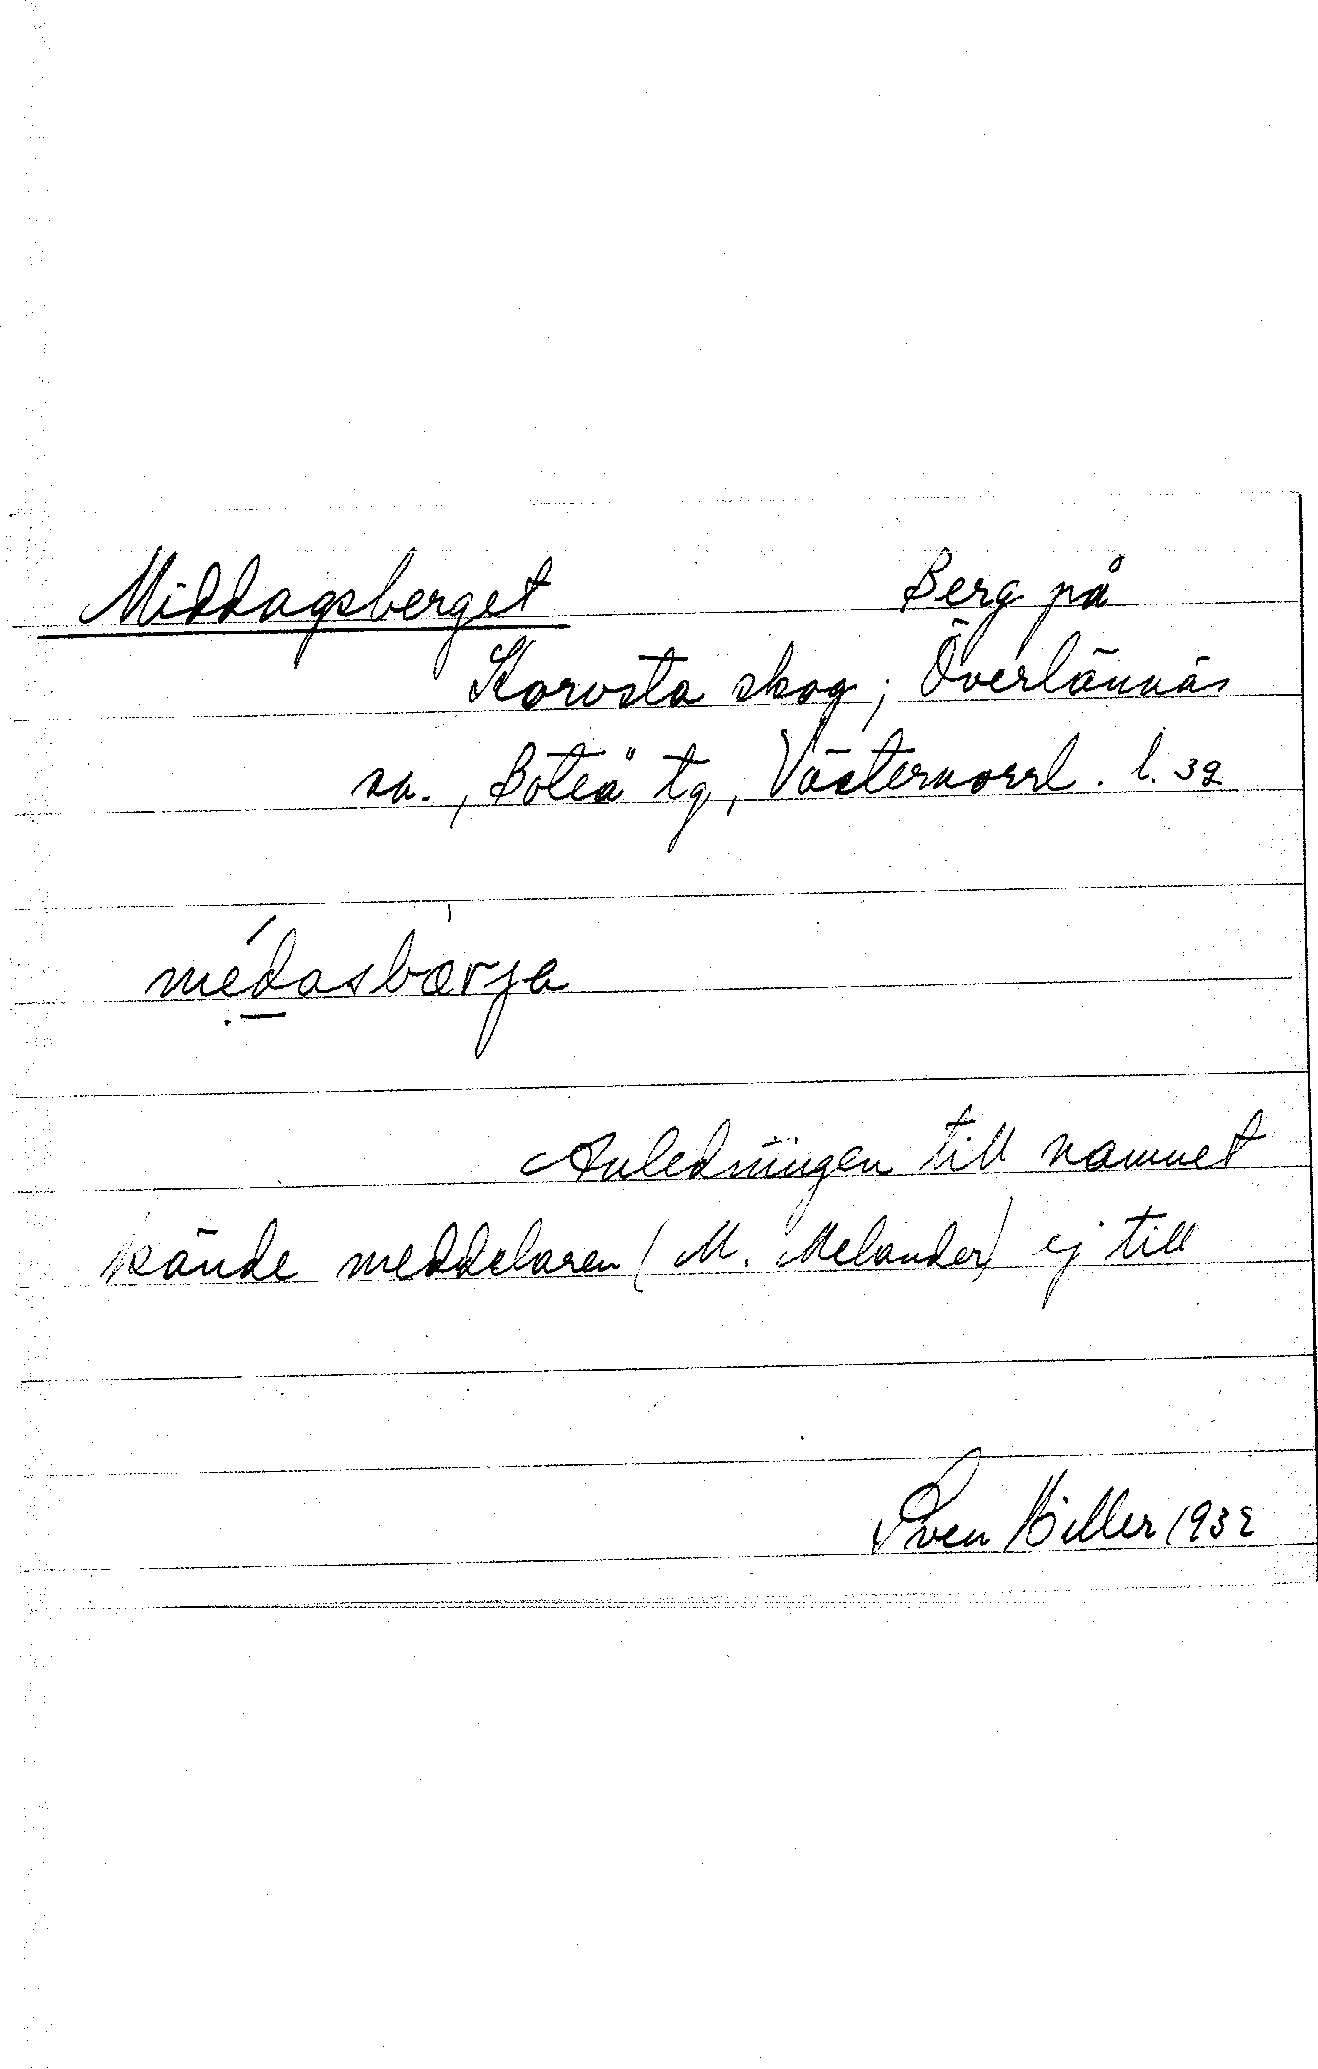 Middagsberget Berg på
Korvsta skog; Överlännäs
sn., Boteå tg, Västernorrl. l. 32
médasbærja
Anledningen till namnet
kände meddelaren (M. Melander) ej till
Sven Hiller 1932